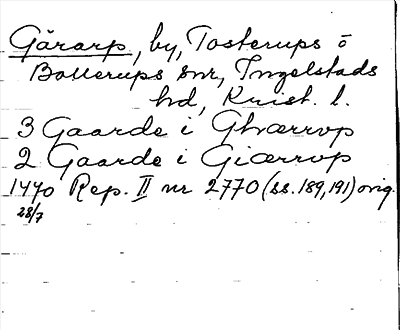 Gärarp, by, Tosterups o
Bollerups snr, Ingelstads
hd, Krist. l.
3 Gaarde i Ghærrvp
2 Gaarde i Giærrvp
1470 Rep. II nr 2770 (ss. 189, 191) orig.
28/7